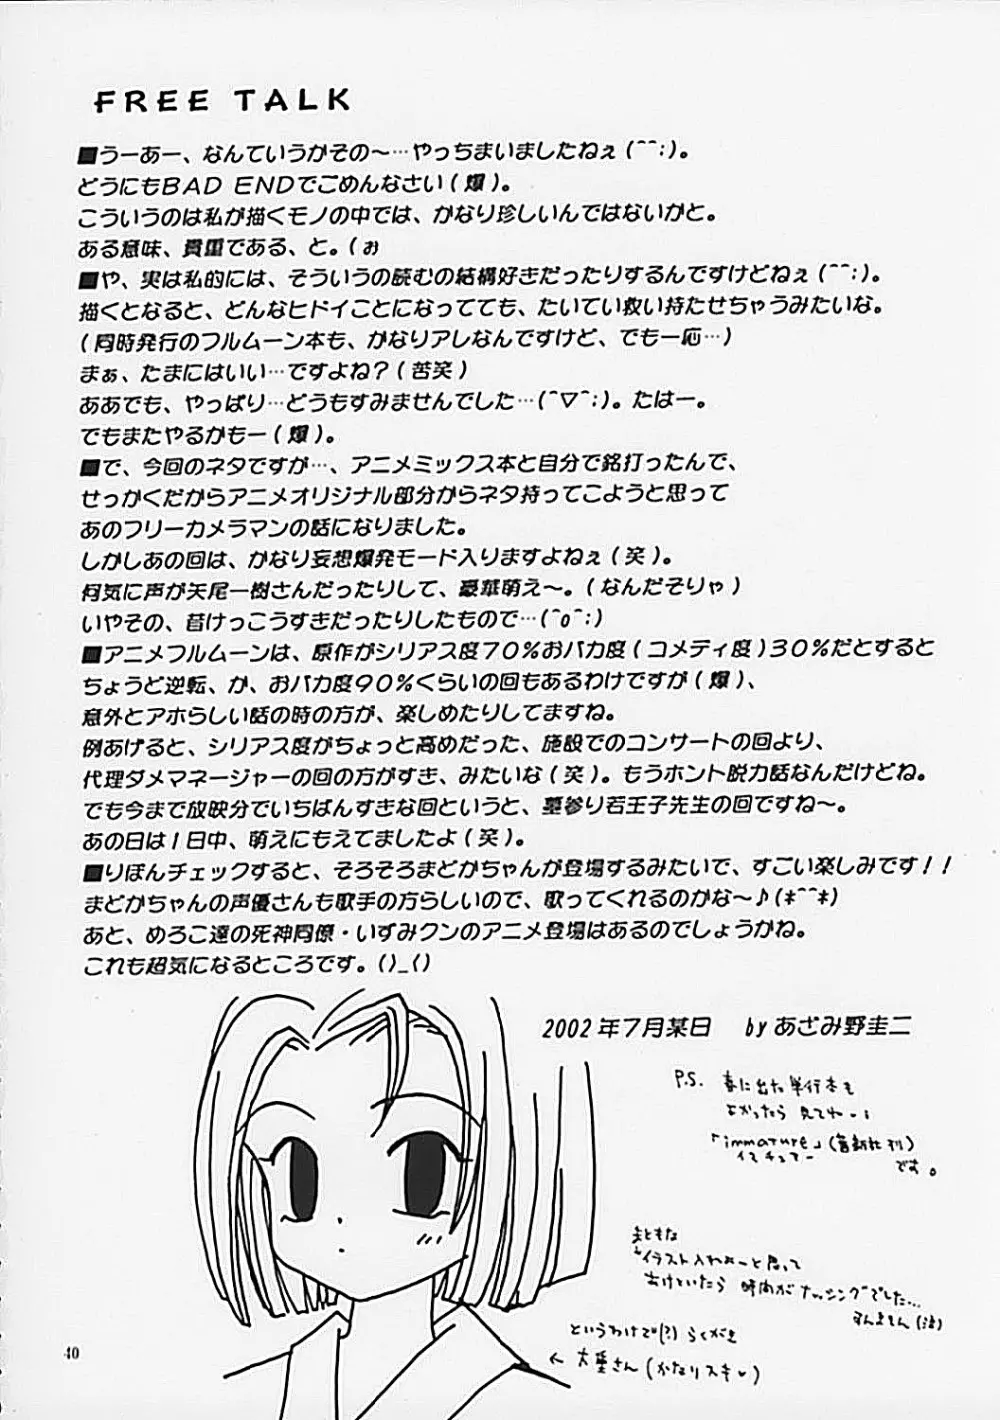 FREE TALK
■うーあー、なんていうかその～…やっちまいましたねぇ(^^;)。
どうにもBAD ENDでごめんなさい(爆)。
こういうのは私が描くモノの中では、かなり珍しいんではないかと。
ある意味、貴重である、と。(ぉ
■や、実は私的には、そういうの読むの結構好きだったりするんですけどねぇ(^^;)。
描くとなると、どんなヒドイことになってても、たいてい救い持たせちゃうみたいな。
(同時発行のフルムーン本も、かなりアレなんですけど、でも一応…)
まぁ、たまにはいい…ですよね？(苦笑)
ああでも、やっぱり…どうもすみませんでした…(^▽^;)。たはー。
でもまたやるかもー(爆)。
■で、今回のネタですが…、アニメミックス本と自分で銘打ったんで、
せっかくだからアニメオリジナル部分からネタ持ってこようと思って
あのフリーカメラマンの話になりました。
しかしあの回は、かなり妄想爆発モード入りますよねぇ(笑)。
何気に声が矢尾一樹さんだったりして、豪華萌え～。(なんだそりゃ)
いやその、昔けっこうすきだったりしたもので…(^o^;)
■アニメフルムーンは、原作がシリアス度70％おバカ度(コメディ度)30％だとすると
ちょうど逆転、か、おバカ度90％くらいの回もあるわけですが(爆)、
意外とアホらしい話の時の方が、楽しめたりしてますね。
例あげると、シリアス度がちょっと高めだった、施設でのコンサートの回より、
代理ダメマネージャーの回の方がすき、みたいな(笑)。もうホント脱力話なんだけどね。
でも今まで放映分でいちばんすきな回というと、墓参り若王子先生の回ですね～。
あの日は1日中、萌えにもえてましたよ(笑)。
■りぼんチェックすると、そろそろまどかちゃんが登場するみたいで、すごい楽しみです！！
まどかちゃんの声優さんも歌手の方らしいので、歌ってくれるのかな～♪(*^^*)
あと、めろこ達の死神同僚・いずみクンのアニメ登場はあるのでしょうかね。
これも超気になるところです。()_()
2002年7月某日　by あざみ野圭二
P.S. 春に出た単行本も
よかったら見てねー!
「immature」(茜新社刊)
イマチュアー
です。
まともな
イラスト入れよーと思って
あけといたら 時間がナッシングでした…
すんません(泣)
というわけで(?) らくがき
← 大重さん(かなりスキ♥)
40